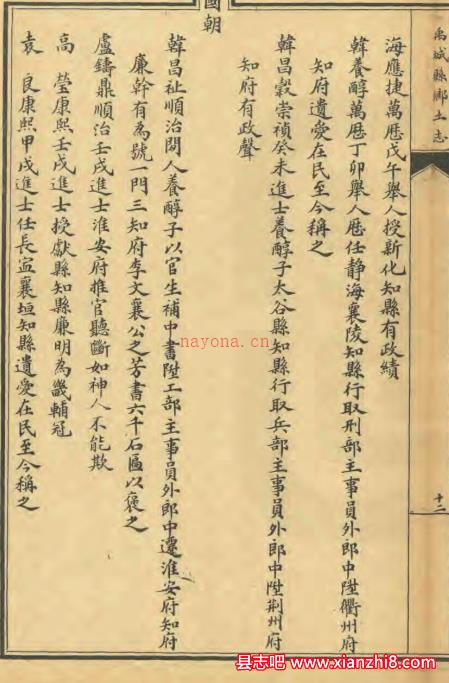 禹城縣鄉土志
十二
海應捷萬厯戊午舉人授新化知縣有政績
韓養醇萬厯丁卯舉人厯任靜海襄陵知縣行取刑部主事員外郎中陞衢州府
知府遺愛在民至今稱之
韓昌穀崇禎癸未進士養醇子太谷縣知縣行取兵部主事員外郎中陞荆州府
知府有政聲
國朝
韓昌祉順治間人養醇子以官生補中書陞工部主事員外郎中遷淮安府知府
廉幹有為號一門三知府李文襄公之芳書六千石區以褒之
盧鑄鼎順治壬戌進士淮安府推官聽斷如神人不能欺
高瑩康熙壬戌進士授獻縣知縣廉明為畿輔冠
袁良康熙甲戌進士任長寍襄垣知縣遺愛在民至今稱之
nayona.cn
县志吧 www.xianzhi8.com